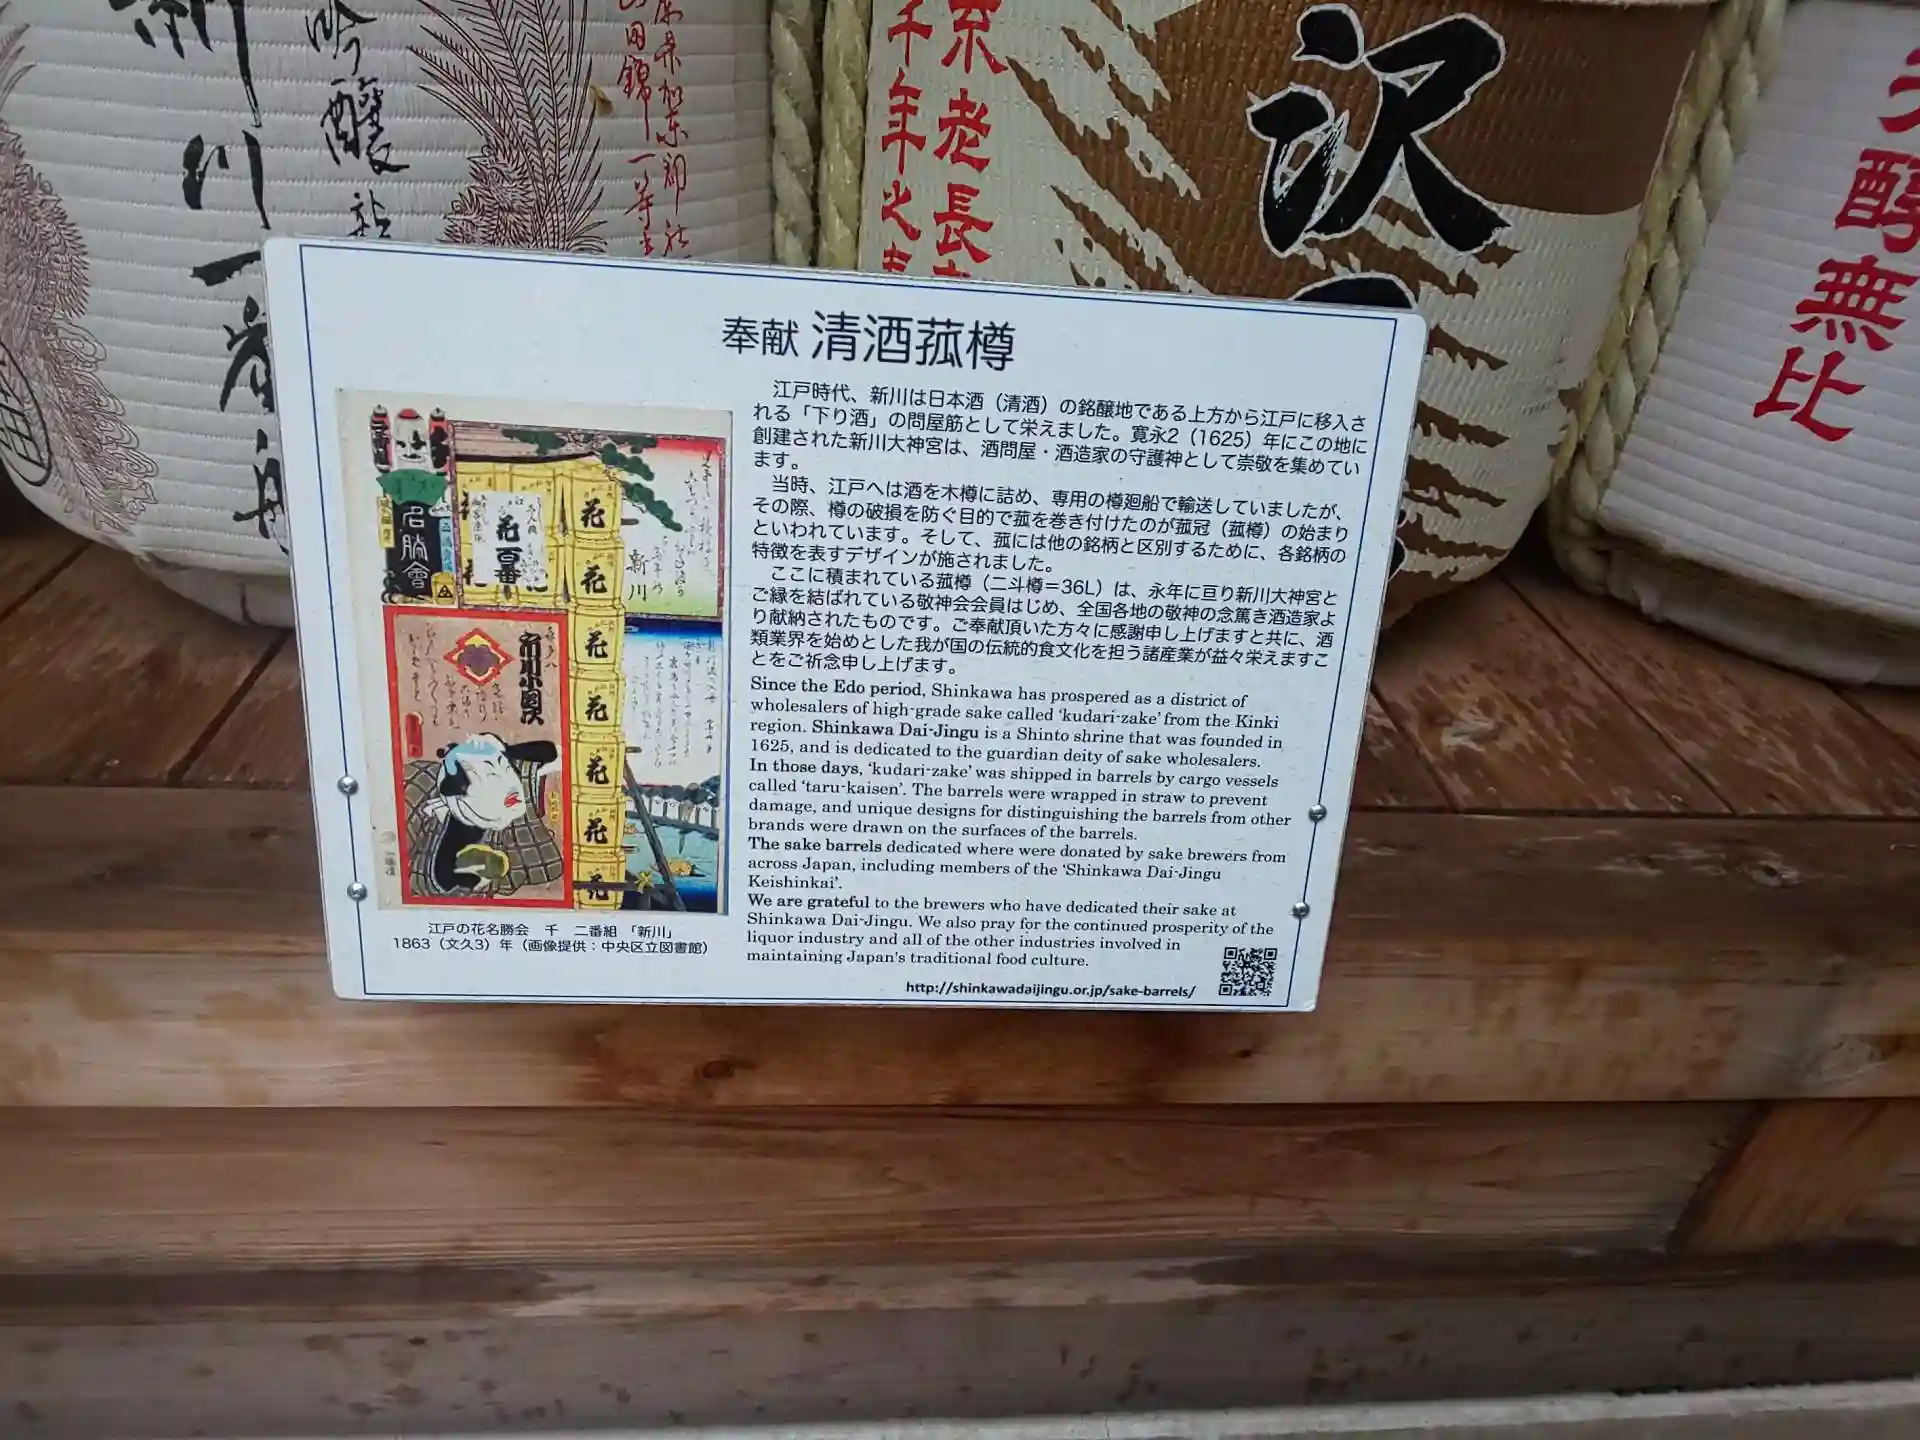 新川
一
吟醸
山田錦
一等
千年
老長
沢
醇無比
奉献 清酒菰樽
江戸時代、新川は日本酒（清酒）の銘醸地である上方から江戸に移入さ
れる「下り酒」の問屋筋として栄えました。寛永2（1625）年にこの地に
創建された新川大神宮は、酒問屋・酒造家の守護神として崇敬を集めてい
ます。
当時、江戸へは酒を木樽に詰め、専用の樽廻船で輸送していましたが、
その際、樽の破損を防ぐ目的で菰を巻き付けたのが菰冠（菰樽）の始まり
といわれています。そして、菰には他の銘柄と区別するために、各銘柄の
特徴を表すデザインが施されました。
ここに積まれている菰樽（二斗樽＝36L）は、永年に亘り新川大神宮と
ご縁を結ばれている敬神会会員はじめ、全国各地の敬神の念篤き酒造家よ
り献納されたものです。ご奉献頂いた方々に感謝申し上げますと共に、酒
類業界を始めとした我が国の伝統的食文化を担う諸産業が益々栄えますこ
とをご祈念申し上げます。
Since the Edo period, Shinkawa has prospered as a district of
wholesalers of high-grade sake called ‘kudari-zake’ from the Kinki
region. Shinkawa Dai-Jingu is a Shinto shrine that was founded in
1625, and is dedicated to the guardian deity of sake wholesalers.
In those days, ‘kudari-zake’ was shipped in barrels by cargo vessels
called ‘taru-kaisen’. The barrels were wrapped in straw to prevent
damage, and unique designs for distinguishing the barrels from other
brands were drawn on the surfaces of the barrels.
The sake barrels dedicated where were donated by sake brewers from
across Japan, including members of the ‘Shinkawa Dai-Jingu
Keishinkai’.
We are grateful to the brewers who have dedicated their sake at
Shinkawa Dai-Jingu. We also pray for the continued prosperity of the
liquor industry and all of the other industries involved in
maintaining Japan's traditional food culture.
http://shinkawadaijingu.or.jp/sake-barrels/
名勝會
花
花
花
花
花
花
花
新川
江戸の花名勝会　千　二番組　「新川」
1863（文久3）年（画像提供：中央区立図書館）